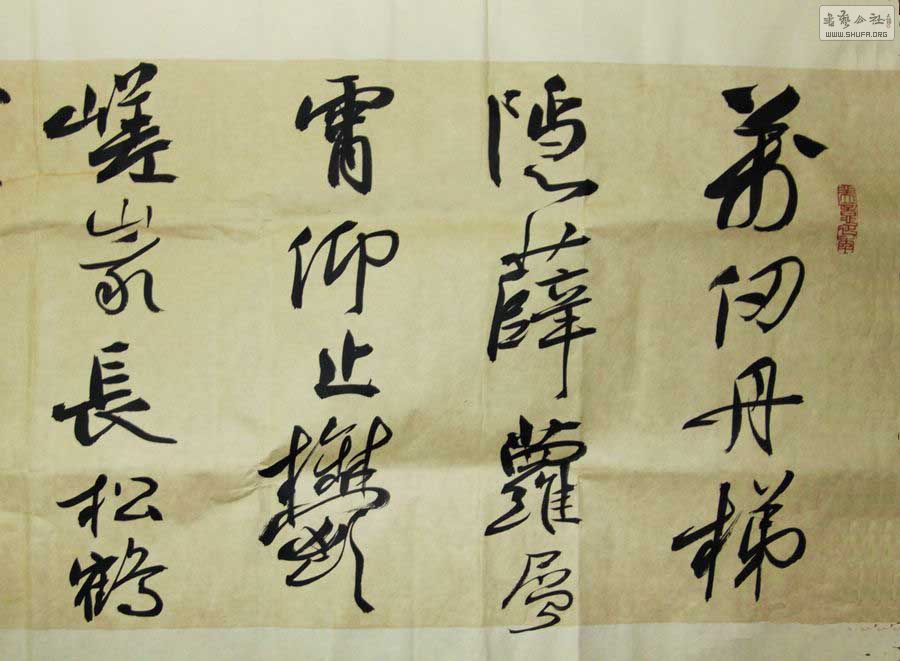 萬仞丹梯
隱薜蘿層
霄仰止鬱
嵯峩長松鶴
書藝公社
WWW.SHUFA.ORG